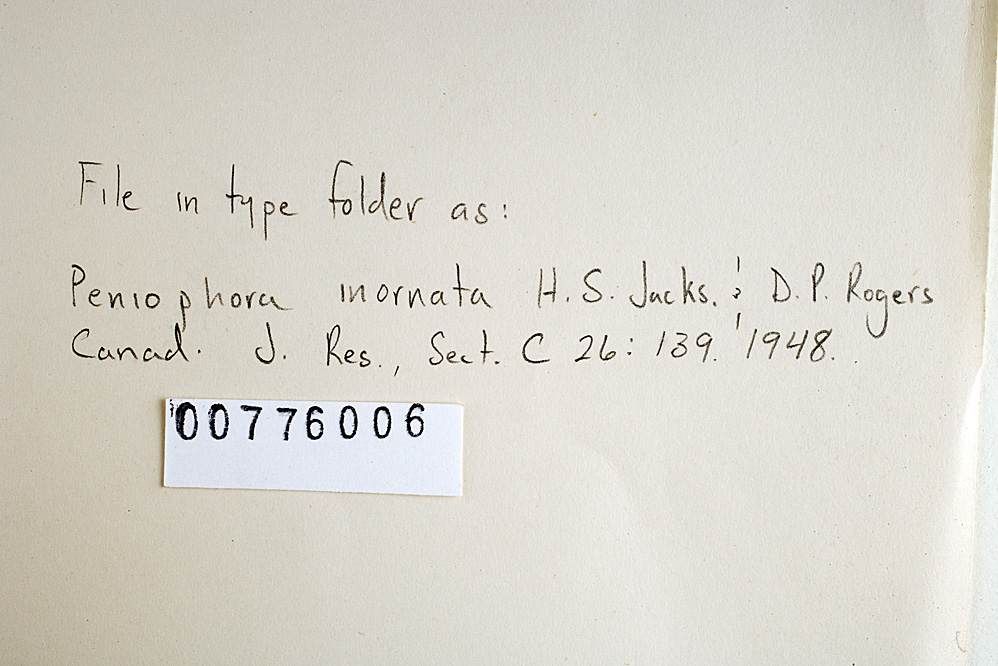 File in type folder as:
Peniophora inornata H.S. Jacks. & D.P. Rogers
Canad. J. Res., Sect. C 26: 139. 1948.
00776006